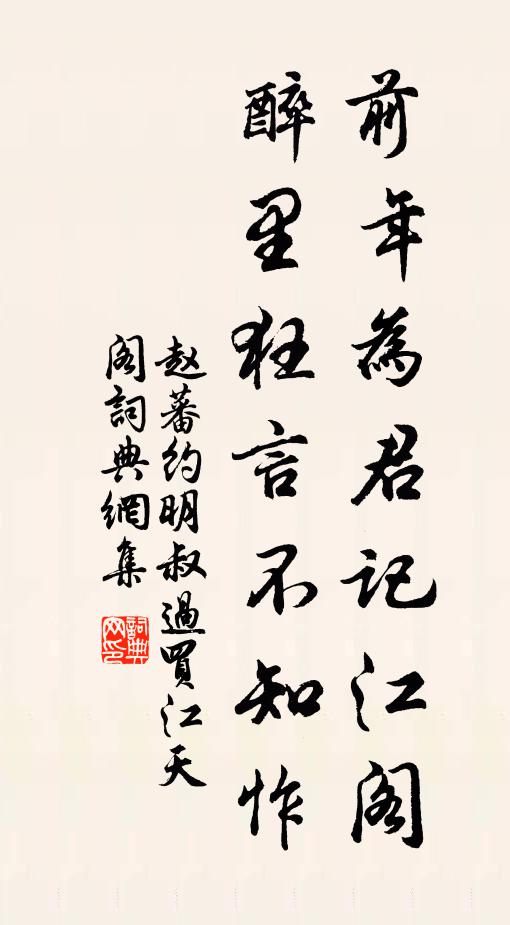 前年為君記江阁
醉里狂言不知怍
赵蕃约明叔過買江天
阁詞典網集
詞典网印